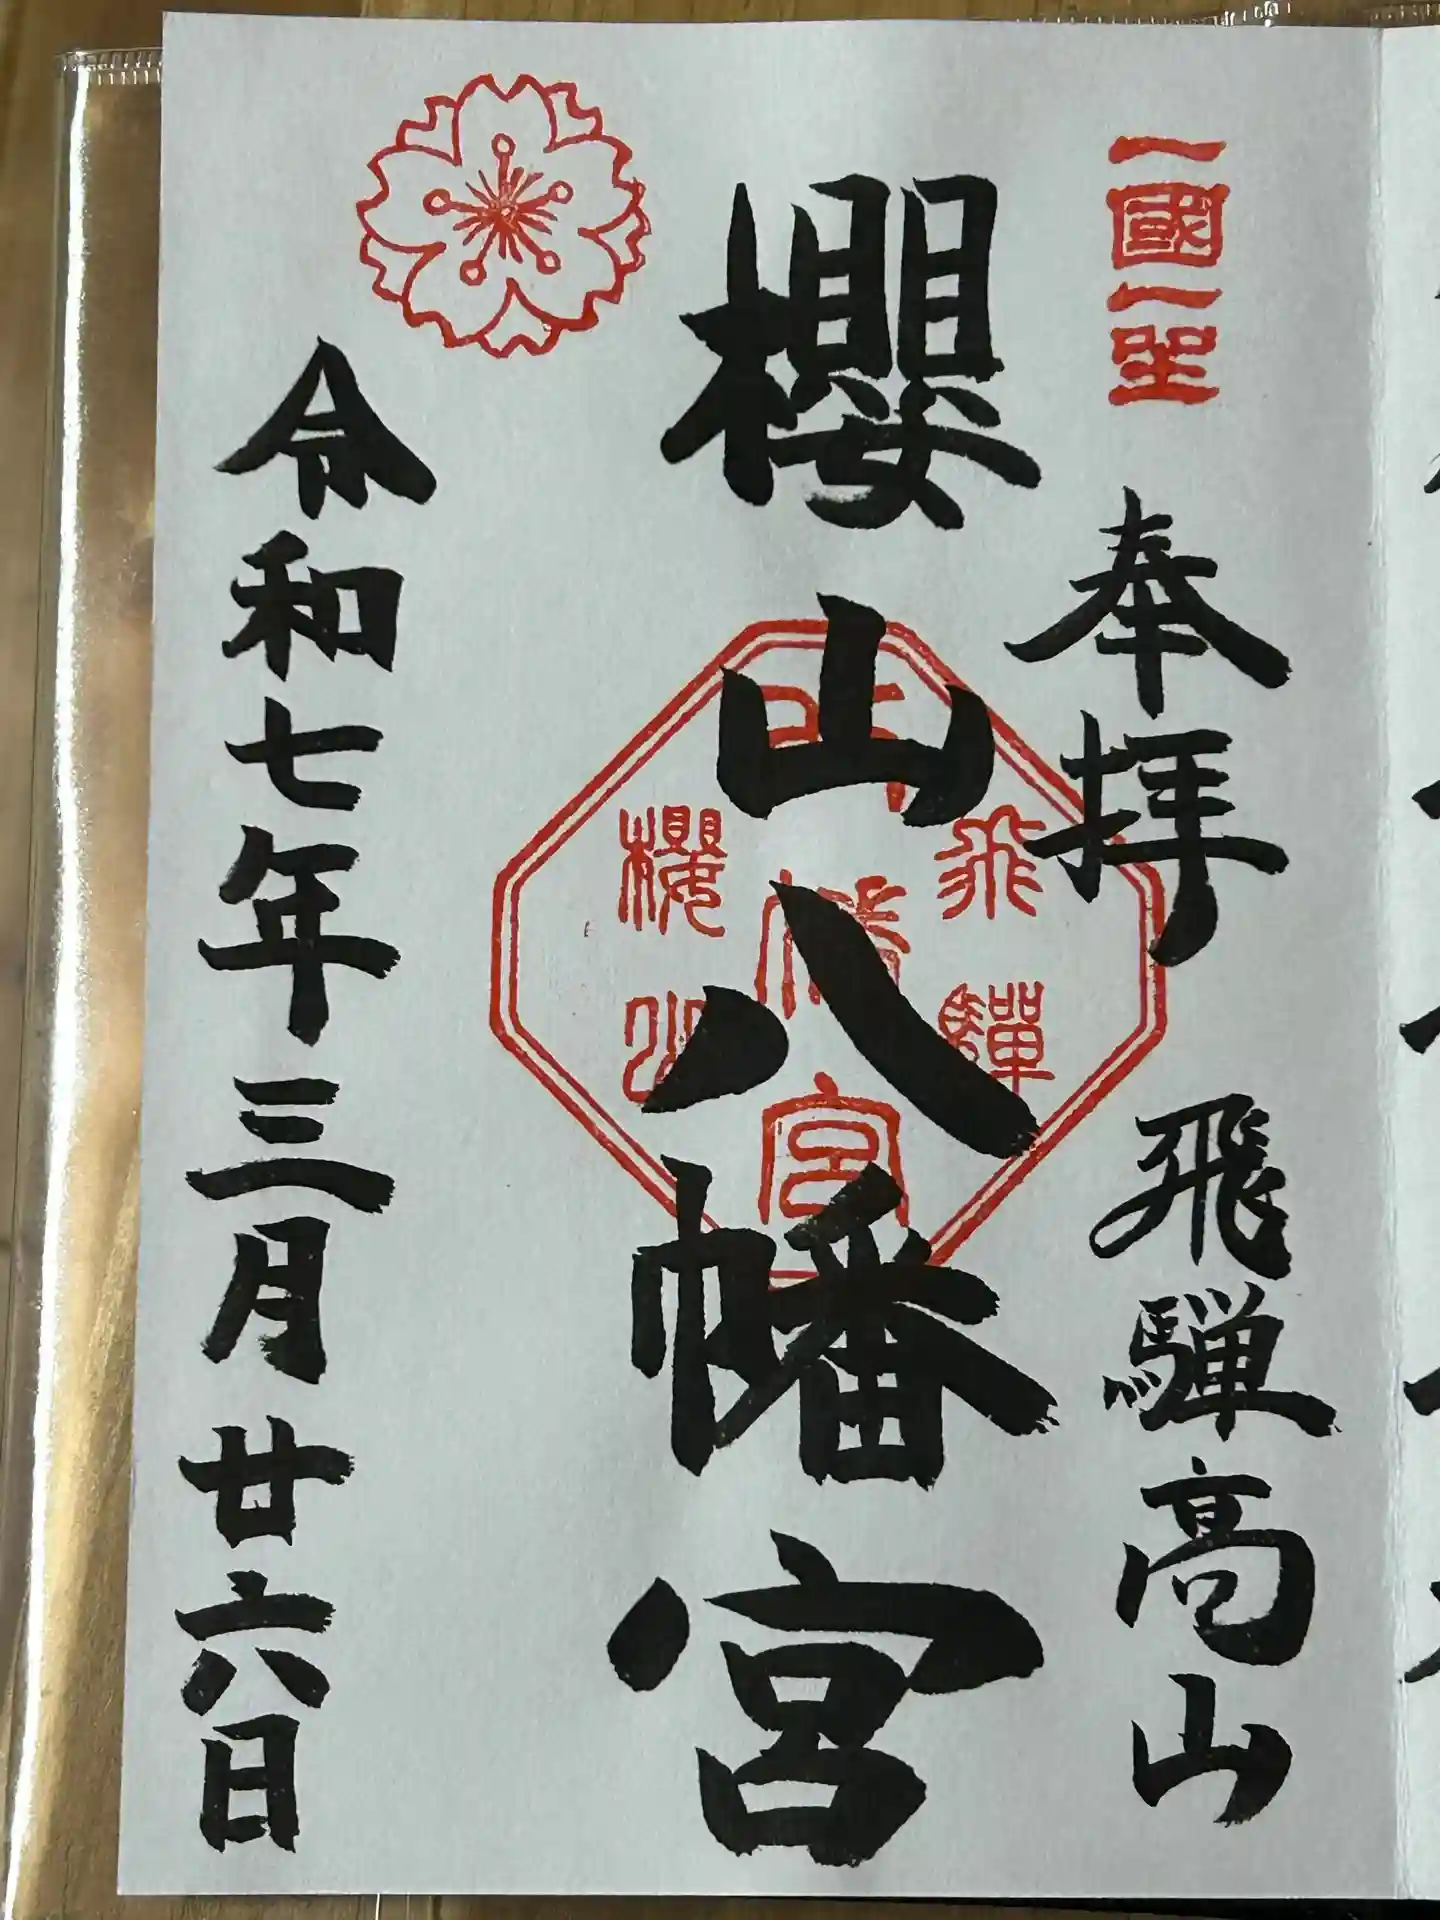 一國一聖
奉拝
飛騨高山
櫻山八幡宮
飛驒
幡
宮
櫻山
令和七年三月廿六日